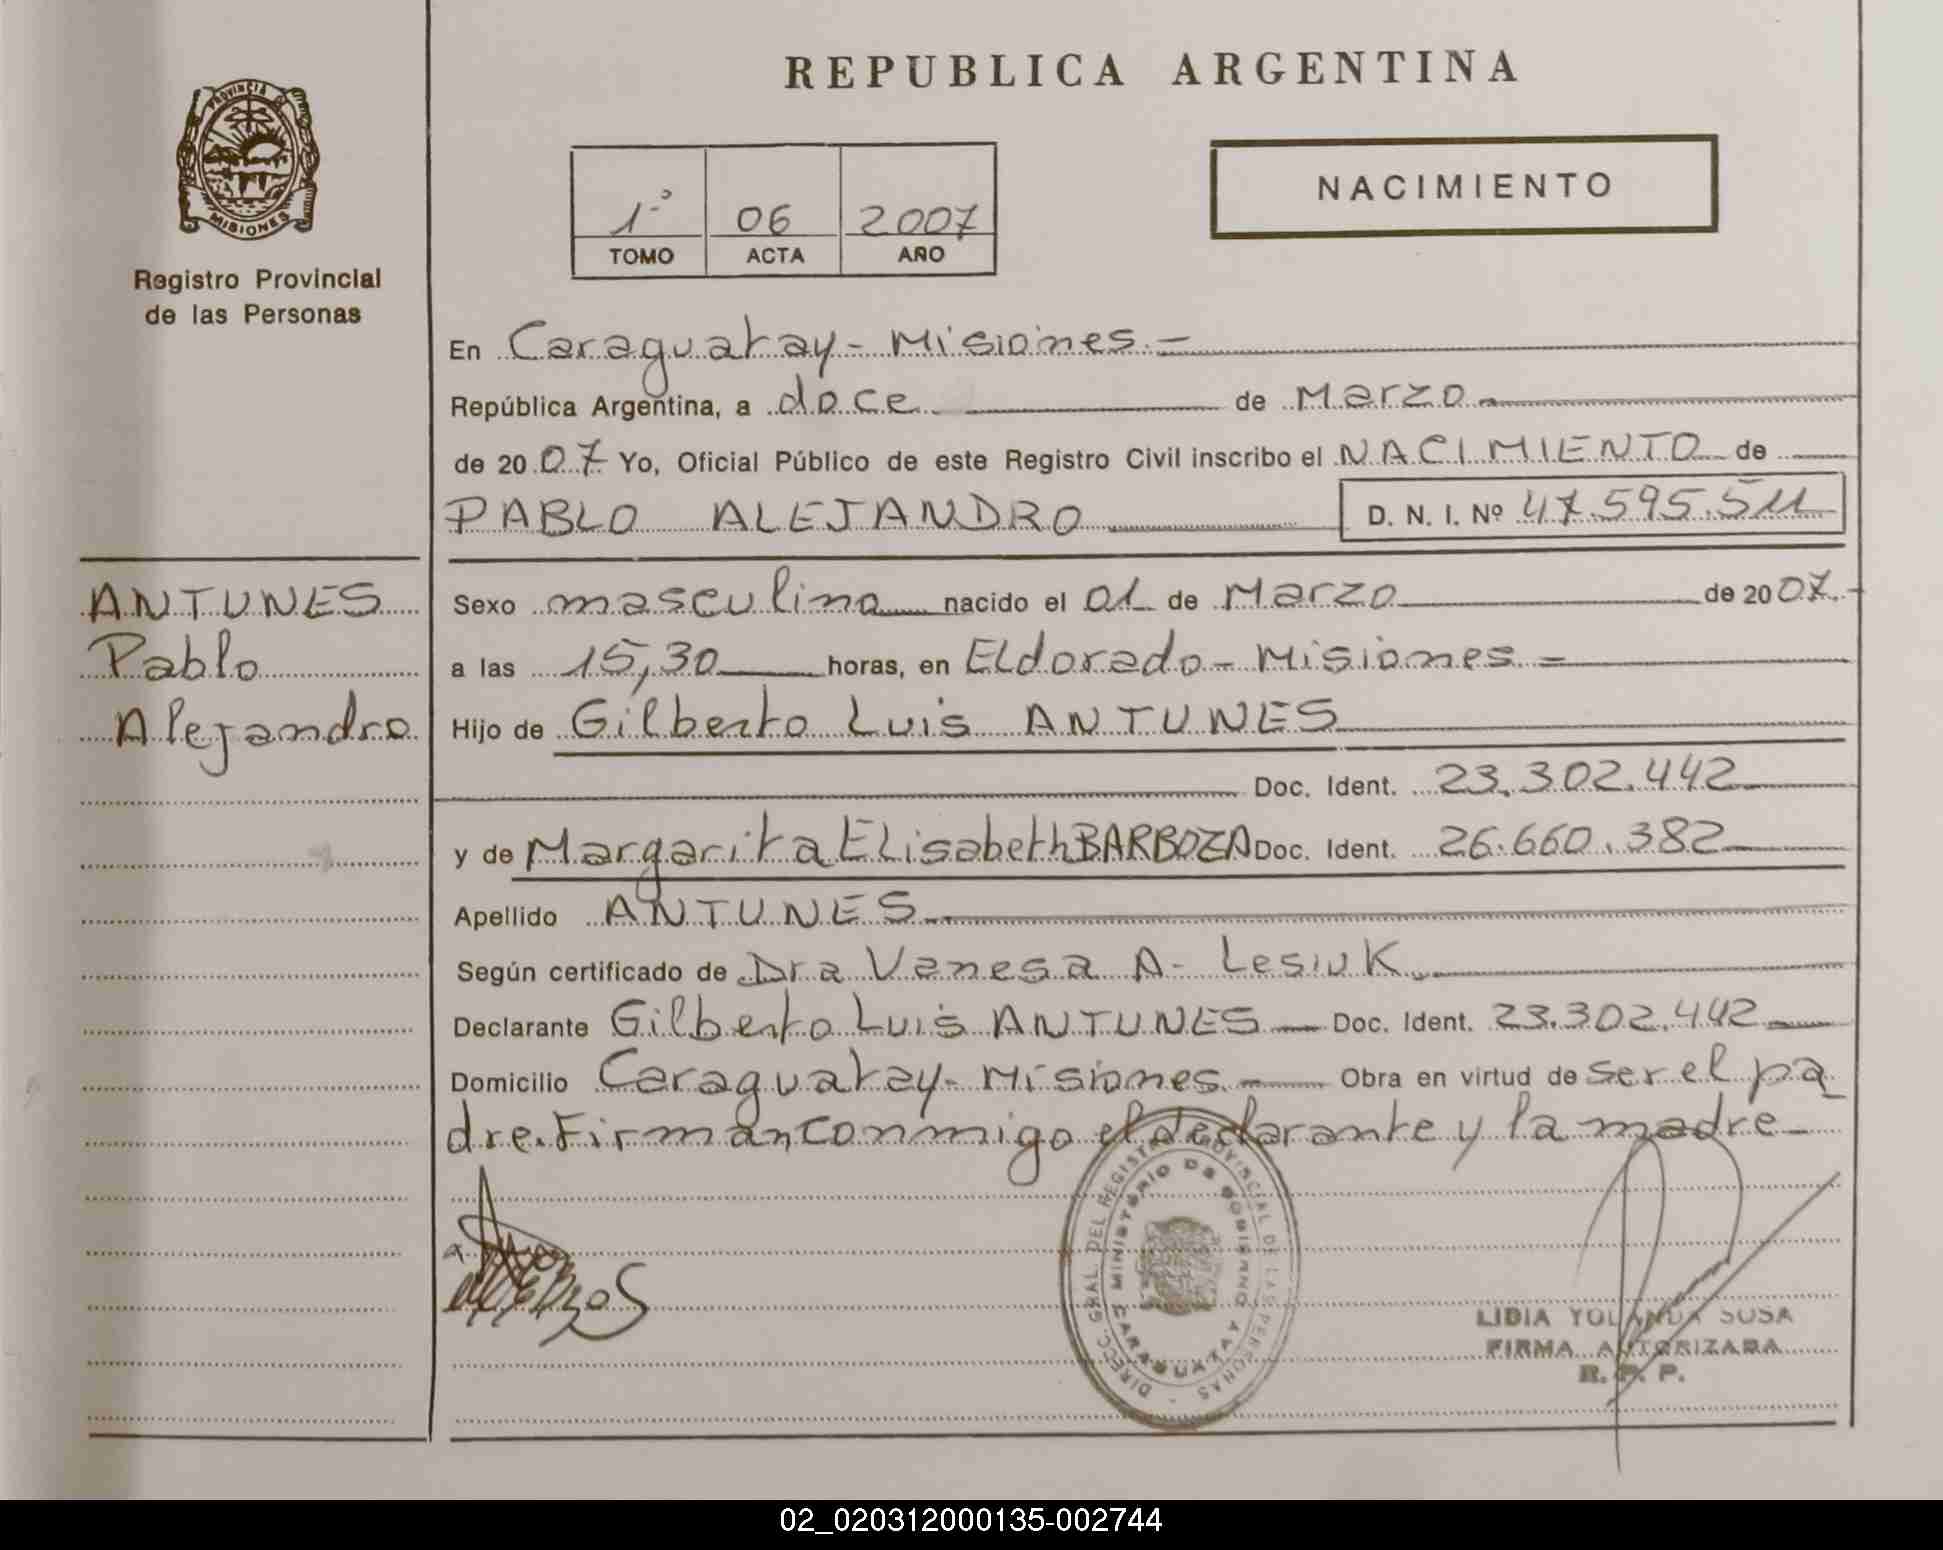 REPUBLICA ARGENTINA
PROVINCIA DE
MISIONES
Registro Provincial
de las Personas
NACIMIENTO
1º 06 2007
TOMO ACTA AÑO
En Caraguatay - Misiones -
República Argentina, a doce de Marzo
de 2007 Yo, Oficial Público de este Registro Civil inscribo el NACIMIENTO de
PABLO ALEJANDRO D. N. I. Nº 47.595.511
ANTUNES
Pablo
Alejandro
Sexo masculino nacido el 01 de Marzo de 2007.-
a las 15,30 horas, en Eldorado - Misiones -
Hijo de Gilberto Luis ANTUNES
Doc. Ident. 23.302.442
y de Margarita ELisabeth BARBOZA Doc. Ident. 26.660.382
Apellido ANTUNES
Según certificado de Dra Vanesa A. Lesiuk
Declarante Gilberto Luis ANTUNES Doc. Ident. 23.302.442
Domicilio Caraguatay - Misiones - Obra en virtud de ser el pa
dre. Firman conmigo el declarante y la madre -
DIREC. GRAL. DEL REGISTRO PROVINCIAL DE LAS PERSONAS
MINISTERIO DE GOBIERNO
CARAGUATAY
LIDIA YOLANDA SOSA
FIRMA AUTORIZADA
R. P. P.
02_020312000135-002744